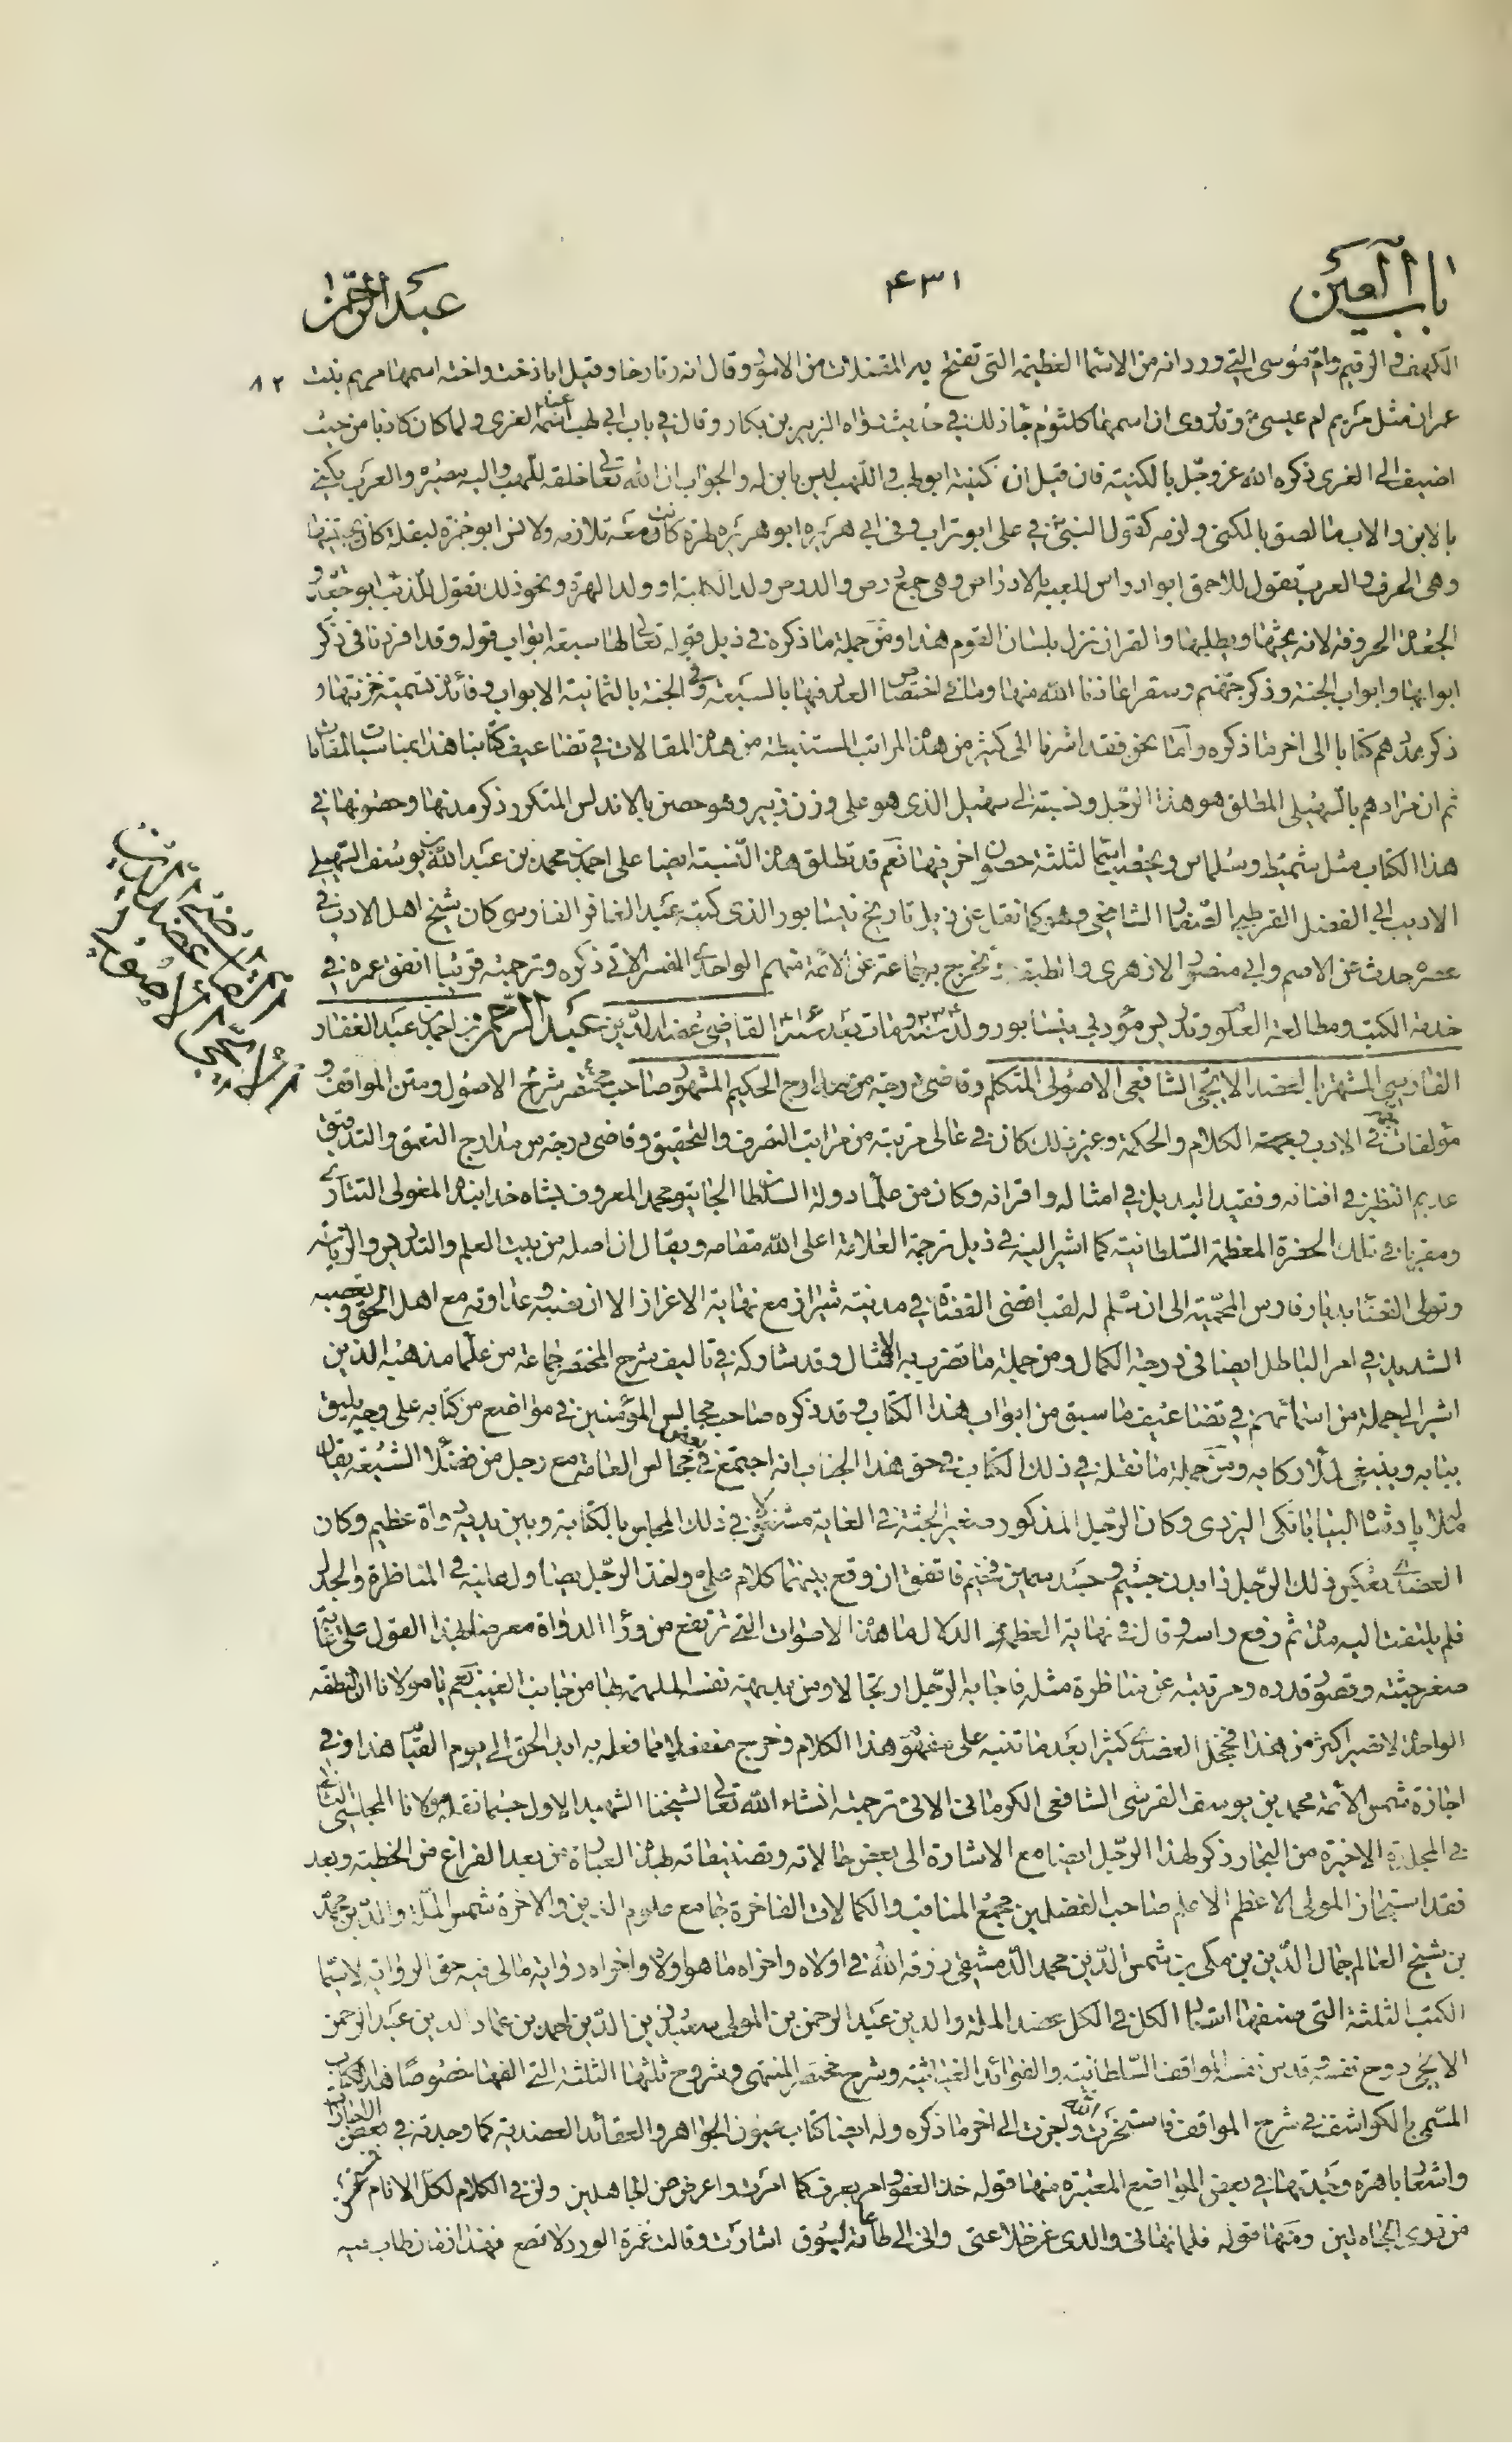 باب العين
۴۳۱
عبد الرحمن
الكهف والرقيم وامّ موسى التي ورد انه من الاسماء العظيمة التي تفتح به المقفلات من الامور وقال انه وقيل اياذخت واخته اسمها مريم بنت
۸۲
عمران مثل مريم ام عيسى وقد روى ان اسمها كلثوم جاء ذلك في حديث رواه الزبير بن بكار وقال في باب ابي لهب اسمه عبد العزى ولما كان كاذبا من حيث
اضيف الى العزى ذكره الله عز وجل بالكنية فان قيل ان كنيته ابو لهب واللهب ليس بابن له والجواب ان الله تعالى خلقه للهب واليه مصيره والعرب يكنى
بالابن والاب ما لصق بالمكنى ولزمه كقول النبي في علي ابو تراب وفي ابي هريرة ابو هريرة لهرة كانت معه تلازمه ولانس ابو حمزة لبقلة كان يجتنيها
وهي الحرف والعرب تقول للاحمق ابو ادراس للعبه بالادراس وهي جمع درص والدرص ولد الكلبة او ولد الهرة ونحو ذلك تقول للذئب ابو جعدة و
الجعدة لانه يحبها ويطلبها والقران نزل بلسان القوم هذا ومن جملة ما ذكره في ذيل قوله تعالى لها سبعة ابواب قوله وقد افردنا في ذكر
ابوابها وابواب الجنة وذكر جهنم وسقر اعاذنا الله منها وما في اختصاص العدد فيها بالسبعة وفي الجنة بالثمانية الابواب وفائدة تسمية خزنتها و
ذكر عددهم كتابا الى اخر ما ذكره وامّا نحن فقد اشرنا الى كثير من هذه المراتب المستنبطة من هذه المقالات في تضاعيف كتابنا هذا بمناسبات المقامات
ثم ان مرادهم بالسهيلى المطلق هو هذا الرجل ونسبته الى سهيل الذى هو على وزن زبير وهو حصن بالاندلس المتكرر ذكر مدنها وحصونها في
هذا الكتاب مثل شميط وسلماس ويختص ايتما لثلثة حصون اخر فيها نعم قد تطلق هذه النسبة ايضا على احمد بن محمد بن عبد الله بن يوسف السهيلى
الاديب ابي الفضل الشافعي وهو كما نقل عن ذيل تاريخ نيشابور الذى كتبه عبد الغافر الفارسى كان شيخ اهل الادب في
عصره حدث عن الاصم وابي منصور الازهرى والطبقة وتخرج به جماعة عن الائمة منهم الواحدى المفسر الاتى ذكره وترجمته قريبا انفق عمره في
خدمة الكتب ومطالعة العلوم وتدريس مؤدبي نيشابور ولد ومات بعد القاضى عضد الدين عبد الرحمن بن احمد بن عبد الغفار
الفارسى المشتهر بالعضد الايجى الشافعى الاصولى المتكلم وقاضى درجة من مدارج الحكيم المشهور صاحب مختصر شرح الاصول ومتن المواقف و
مؤلفات في الادب الكلام والحكمة وغير ذلك كان في عالى مرتبة من مراتب التصرف والتحقيق وقاضى درجة من مدارج التعمق والتدقيق
عديم النظير في افنانه وفقيد البديل في امثاله واقرانه وكان من علماء دولة السلطان الجايتو محمد المعروف بشاه خدابنده المغولى التتارى
ومقربا في تلك الحضرة المعظمة السلطانية كما اشير اليه في ذيل ترجمة العلامة اعلى الله مقامه ويقال ان اصله من بيت العلم والتدريس والرياسة
وتولى القضاء بديار فارس المحمية الى ان سلم له لقب اقضى القضاة في مدينة شيراز مع نهاية الاعزاز الا ان نصبه وعداوته مع اهل الحق وتعصبه
الشديد في امر الباطل ايضا في درجة الكمال ومن جملة ما تضرب به الامثال وقد شاركه في تاليف شرح المختصر جماعة من علماء مذهبه الذين
اشير الى جملة من اسمائهم في تضاعيف ما سبق من ابواب هذا الكتاب وقد ذكره صاحب مجالس المؤمنين في مواضع من كتابه على وجه يليق
ببابه وينبغى لاركابه ومن جملة ما نقله في ذلك الكتاب في حق هذا الجناب انه اجتمع في بعض مجالس العامة مع رجل من فضلاء الشيعة يقال
له ملا پادشاه اليزدى وكان الرجل المذكور صغير الجثة في الغاية مشغولا في ذلك المجلس بالكتابة وبين يديه دواة عظيم وكان
العضدى بعكس ذلك الرجل ذا بدن جسيم وجسد سمين فخيم فاتفق ان وقع بينهما كلام على ولهذا الرجل يصاول عليه في المناظرة والجدل
فلم يلتفت اليه ثم رفع راسه وقال في نهاية العظمة والدلال ما هذه الاصوات التى ترتفع من وراء الدواة معرضا بهذا القول على غاية
صغر جثته وقصور قدره ومرتبته عن مناظرة مثله فاجابه الرجل ارتجالا ومن بديهة نفسه الملهمة لها من جانب الغيب نعم يا مولانا ان النطفة
الواحدة لا تصير اكثر من هذا فخجل العضدى كثيرا بعد ما تنبه على مفهوم هذا الكلام وخرج منفعلا مما فعله به اهل الحق الى يوم القيام هذا وفي
اجازة شمس الائمة محمد بن يوسف القرشى الشافعى الكرمانى الاتى ترجمته انشاء الله تعالى لشيخنا الشهيد الاول حسبما نقله مولانا المجلسى
في المجلدة الاخيرة من البحار ذكر لهذا الرجل ايضا مع الاشارة الى بعض حالاته وتصنيفاته بهذه العبارة من بعد الفراغ من الخطبة وبعد
فقد استجاز المولى الاعظم الاعلم صاحب الفضلين مجمع المناقب والكمالات الفاخرة جامع علوم الدين والاخرة شمس الملة والدين محمد
بن شيخ العالم جمال الدين بن مكى بن شمس الدين محمد الدمشقى رزقه الله في اولاه واخراه ما هو اولاه واخراه رواية مالى فيه حق الرواية لاسيما
الكتب الثلثة التى صنفها استاذ الكل في الكل عضد الملة والدين عبد الرحمن بن المولى السعيد زين الدين احمد بن عماد الدين عبد الرحمن
الايجى روح نفسه وقدس رمسه المواقف السلطانية والفوائد الغياثية وشرح مختصر المنتهى وشروح ثلثها الثلثة التى الفها خصوصا هذا الكتاب
المسمى بالكواشف في شرح المواقف فاستخرت الله واجزت الى اخر ما ذكره وله ايضا كتاب عيون الجواهر والعقائد العضدية كما وجدته في بعض الاجازات
واشعار باهرة وجدتها في بعض المواضع المعتبرة منها قوله خذ العفو وامر بعرف كما امرت واعرض عن الجاهلين ولن في الكلام لكل الانام فمستحسن
من ذوى الجاه لين ومنها قوله فلما نهانى والدى عن خلاعتى وانى الى طاعاته لسوق اشارت وقالت غمزة الورد لا تصع فهذا زمان طاب فيه
القاضى عضد الدين
الايجى الاصولى